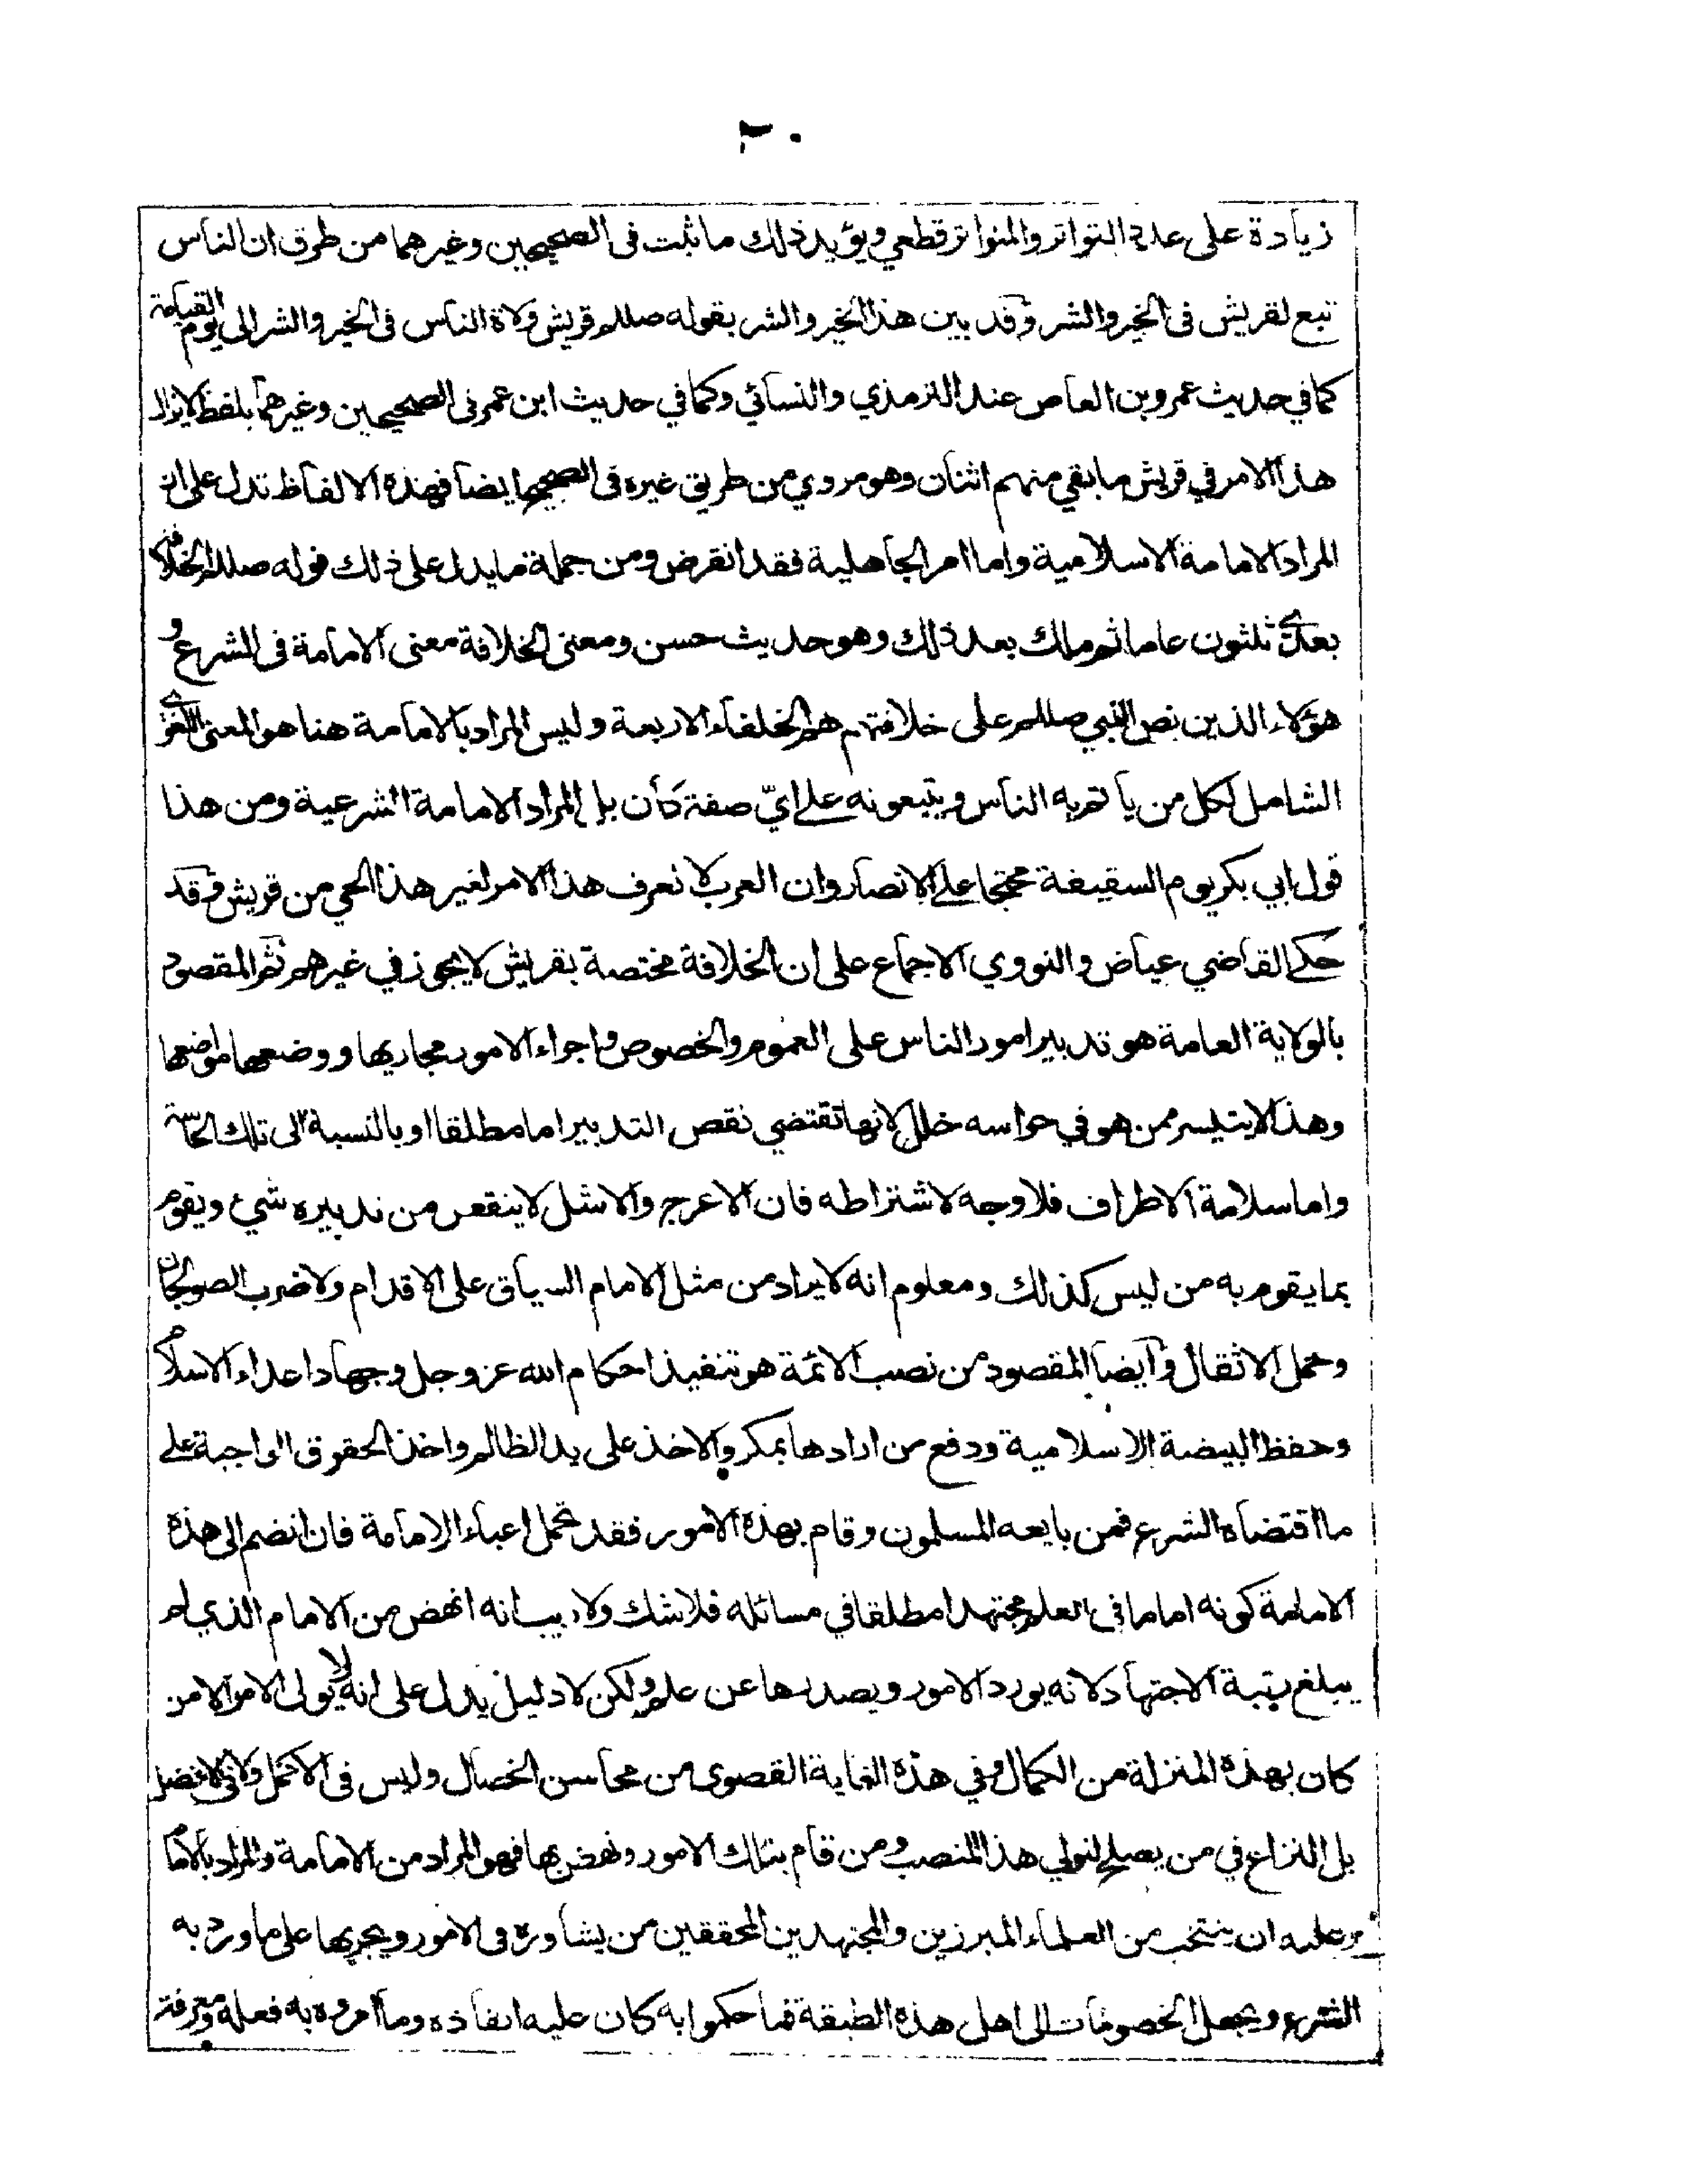 ٢٠
زيادة على عدد التواتر والمتواتر قطعي ويؤيد ذلك ما ثبت فى الصحيحين وغيرهما من طرق ان الناس
تبع لقريش فى الخير والشر وقد بين هذا الخير والشر بقوله صللم قريش ولاة الناس فى الخير والشر الى يوم القيامة
كما في حديث عمرو بن العاص عند الترمذي والنسائي وكما في حديث ابن عمر فى الصحيحين وغيرهما بلفظ لا يزال
هذا الامر في قريش ما بقي منهم اثنان وهو مروي من طريق غيره فى الصحيح ايضا فهذه الالفاظ تدل على ان
المراد الامامة الاسلامية واما امر الجاهلية فقد انقرض ومن جملة ما يدل على ذلك قوله صللم الخلافة
بعدي ثلثون عاما ثم ملك بعد ذلك وهو حديث حسن ومعنى الخلافة معنى الامامة فى الشرع و
هؤلاء الذين نص النبي صللم على خلافتهم هم الخلفاء الاربعة وليس المراد بالامامة هنا هو المعنى اللغوي
الشامل لكل من يأتم به الناس ويتبعونه على ايّ صفة كان بل المراد الامامة الشرعية ومن هذا
قول ابي بكر يوم السقيفة محتجا على الانصار وان العرب لا تعرف هذا الامر لغير هذا الحي من قريش وقد
حكى القاضي عياض والنووي الاجماع على ان الخلافة مختصة بقريش لا يجوز في غيرهم ثم المقصود
بالولاية العامة هو تدبير امور الناس على العموم والخصوص واجراء الامور مجاريها ووضعها مواضعها
وهذا لا يتيسر ممن هو في حواسه خلل لانها تقتضي نقص التدبير اما مطلقا او بالنسبة الى تلك الحاسة
واما سلامة الاطراف فلا وجه لاشتراطه فان الاعرج والاشل لا ينقص من تدبيره شيء ويقوم
بما يقوم به من ليس كذلك ومعلوم انه لا يراد من مثل الامام السباق على الاقدام ولا ضرب الصولجان
وحمل الاثقال وايضا المقصود من نصب الائمة هو تنفيذ احكام الله عز وجل وجهاد اعداء الاسلام
وحفظ البيضة الاسلامية ودفع من ارادها بمكر والاخذ على يد الظالم واخذ الحقوق الواجبة على
ما اقتضاه الشرع فمن بايعه المسلمون وقام بهذه الامور فقد تحمل اعباء الامامة فان انضم الى هذه
الامامة كونه اماما فى العلم مجتهدا مطلقا في مسائله فلا شك ولا ريب انه انهض من الامام الذي لم
يبلغ رتبة الاجتهاد لانه يورد الامور ويصدرها عن علم ولكن لا دليل يدل على انه لا يولى الامر الا من
كان بهذه المنزلة من الكمال وفي هذه الغاية القصوى من محاسن الخصال وليس فى الاكمل ولا فى الافضل
بل النزاع في من يصلح لتولي هذا المنصب ومن قام بتلك الامور ونهض بها فهو المراد من الامامة والمراد بالامام
عليه ان ينتخب من العلماء المبرزين والمجتهدين المحققين من يشاوره فى الامور ويجريها على ما ورد به
الشرع ويجعل الخصومات الى اهل هذه الطبقة فما حكموا به كان عليه انفاذه وما امروه به فعله ومعرفة